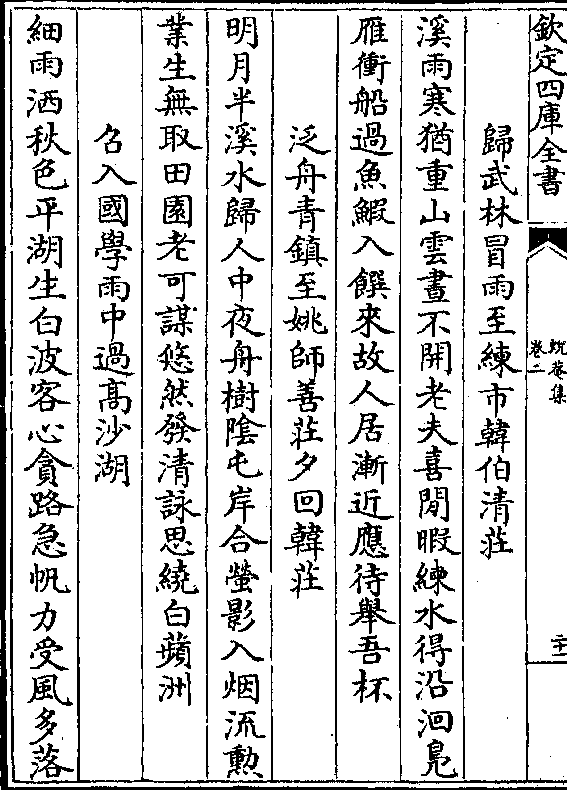 欽定四庫全書
蛻菴集
卷二
二十一
歸武林冒雨至練市韓伯清莊
溪雨寒猶重山雲晝不開老夫喜閒暇練水得沿洄鳬
雁衝船過魚鰕入饌來故人居漸近應待舉吾杯
泛舟青鎮至姚師善莊夕回韓莊
明月半溪水歸人中夜舟樹陰屯岸合螢影入烟流勲
業生無取田園老可謀悠然發清詠思繞白蘋洲
召入國學雨中過髙沙湖
細雨洒秋色平湖生白波客心貪路急帆力受風多落